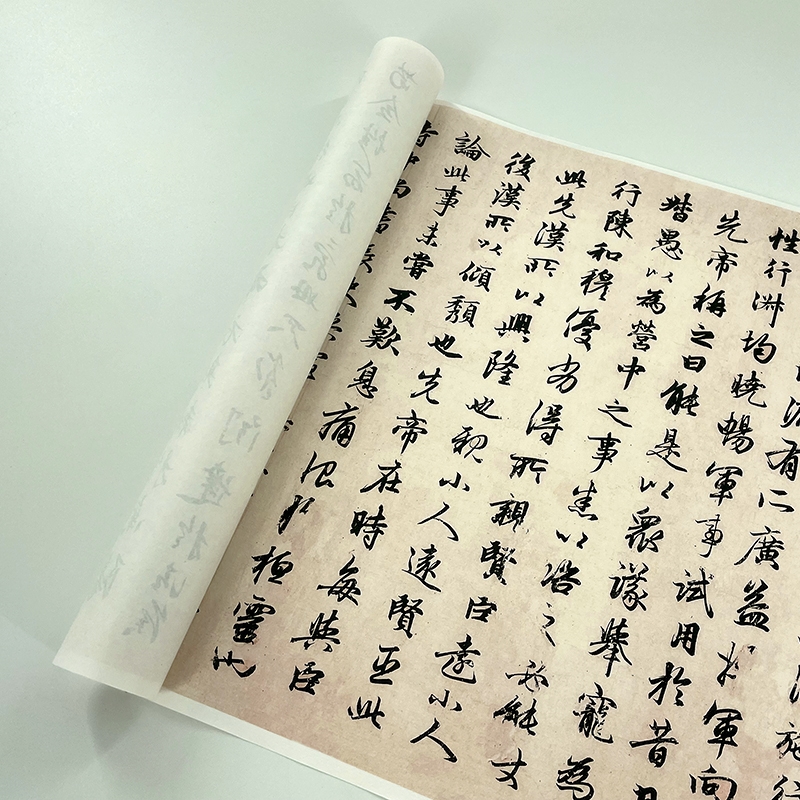 施行
漏有所廣益將軍向
性行淑均曉暢軍事試用於昔日
先帝稱之曰能是以眾議舉寵為
督愚以為營中之事悉以咨之必能
行陳和穆優劣得所親賢臣遠小人
此先漢所以興隆也親小人遠賢臣此
後漢所以傾頹也先帝在時每與臣
論此事未嘗不歎息痛恨於桓靈也